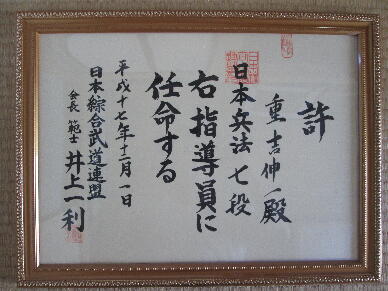 許
重吉伸一殿
日本兵法七段
右指導員に
任命する
平成十七年十二月一日
日本綜合武道連盟
会長 範士 井上一利